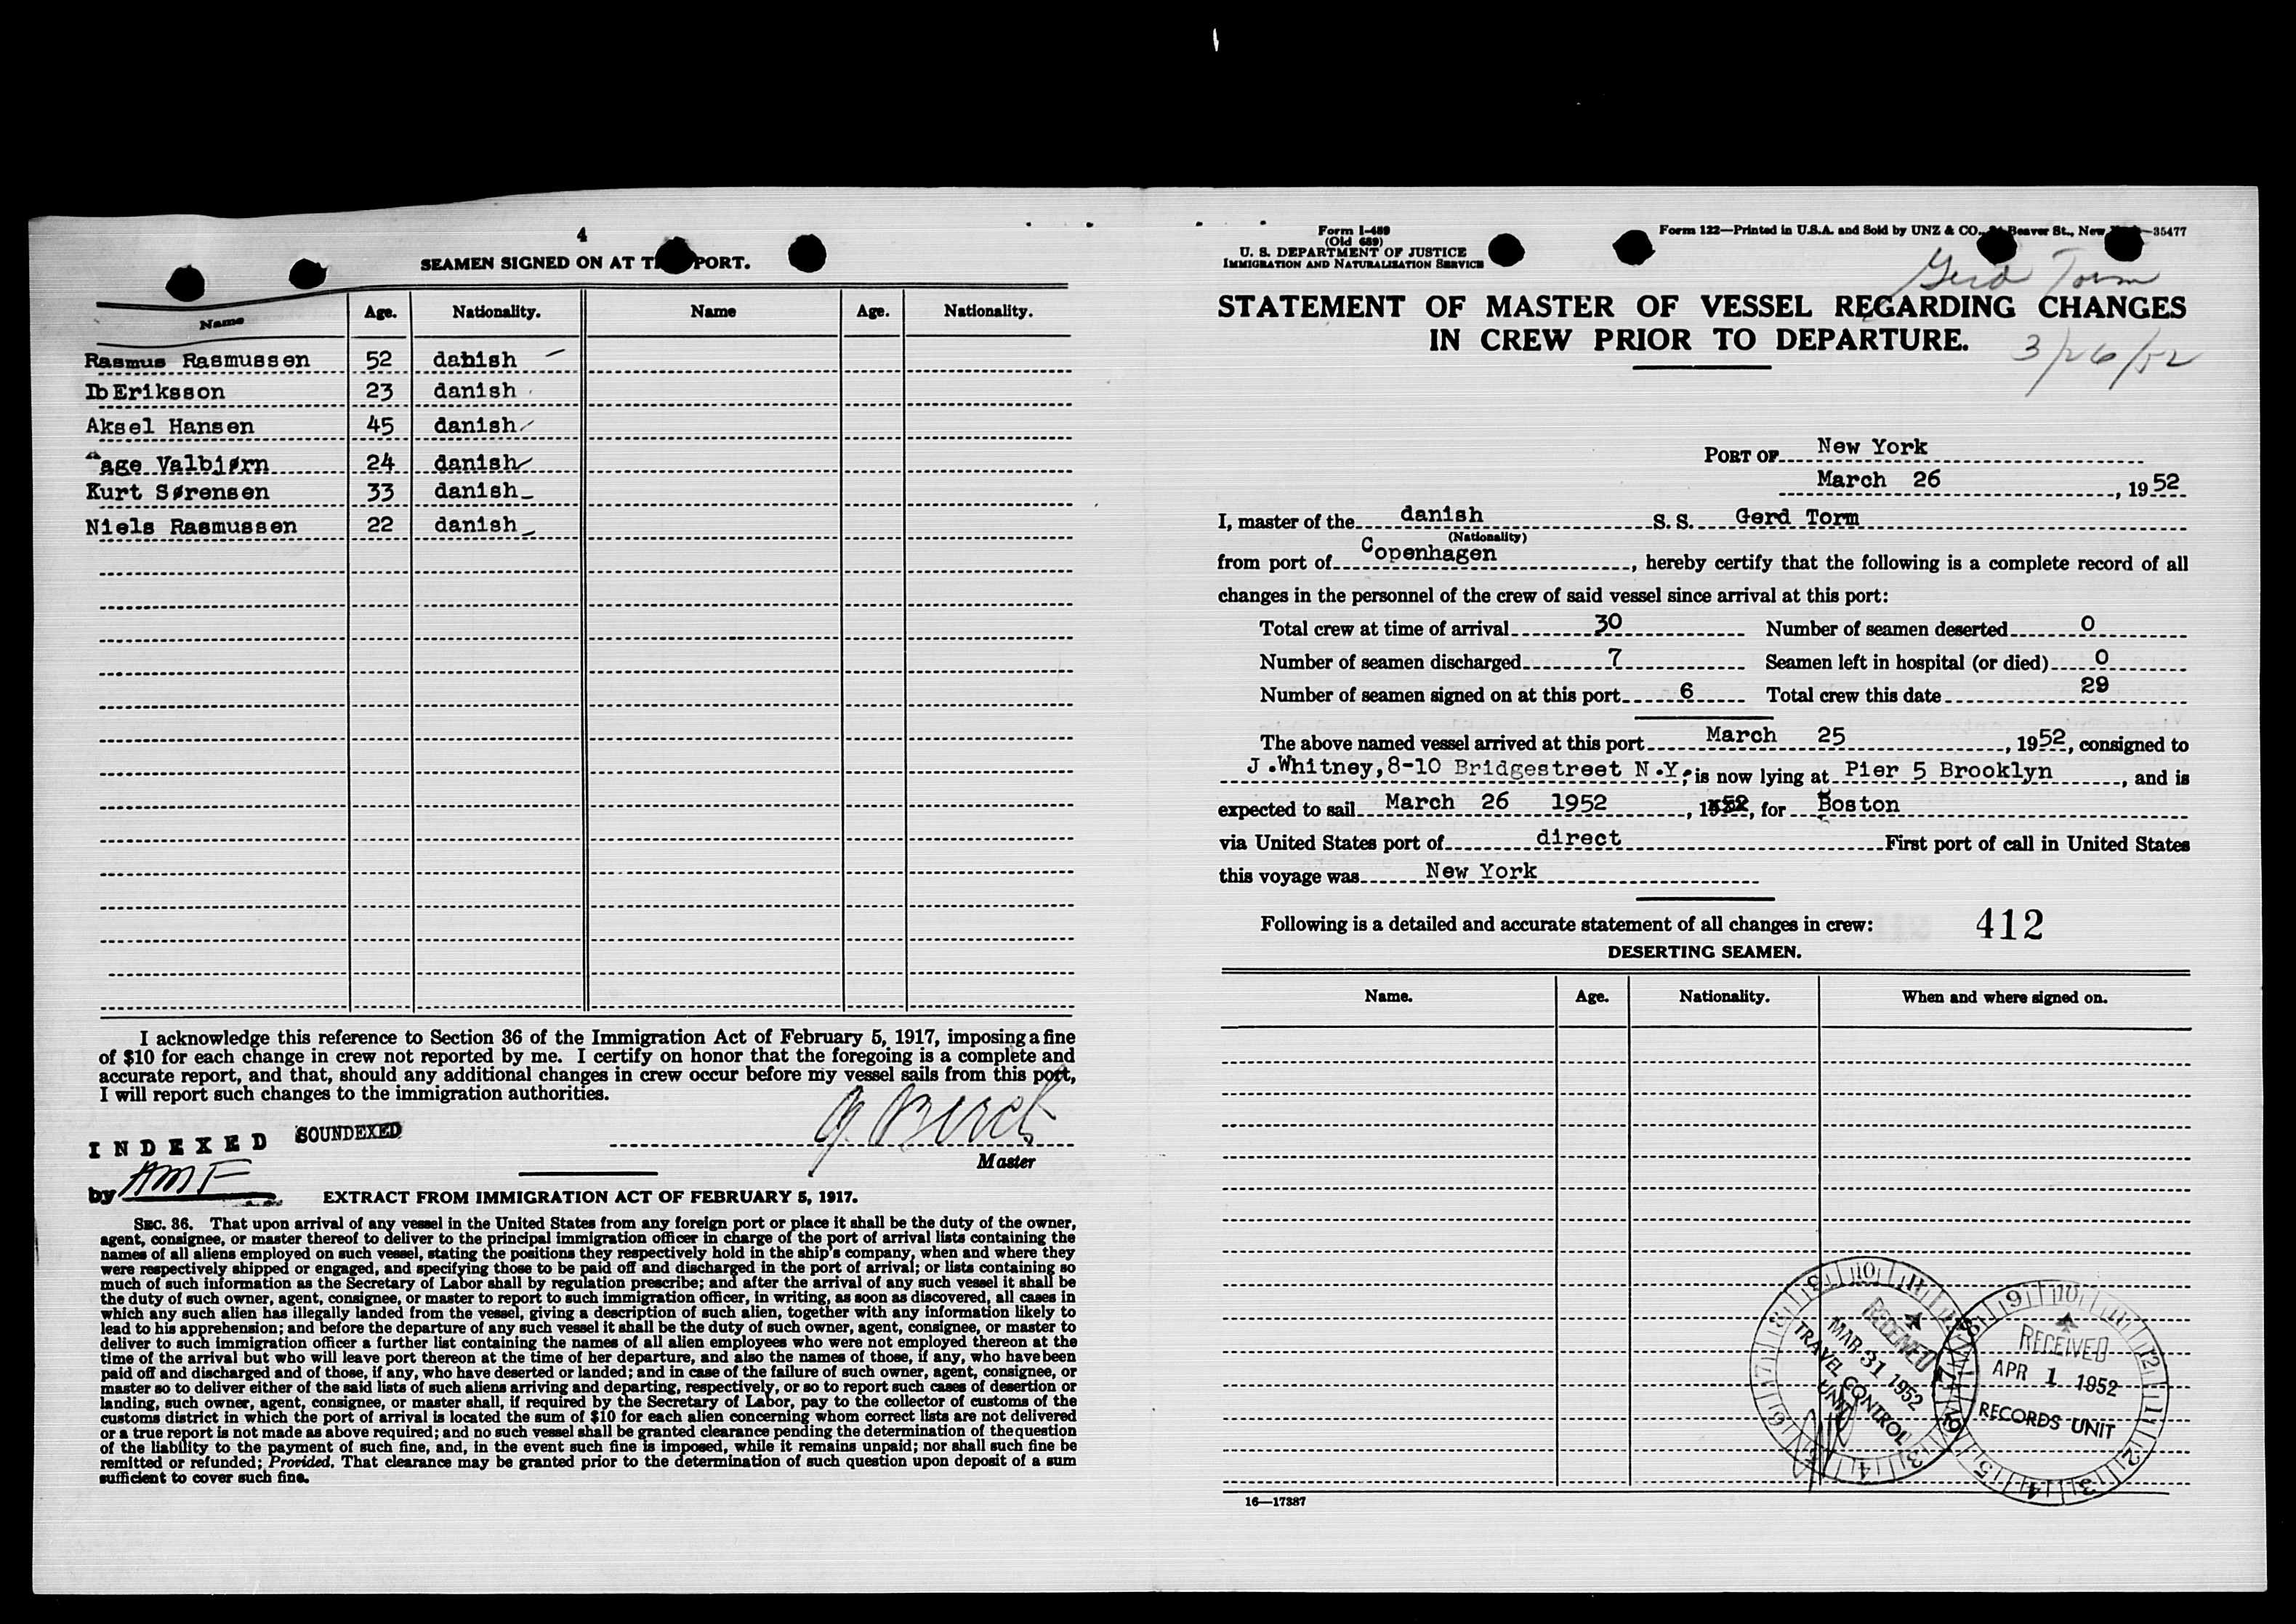 4
SEAMEN SIGNED ON AT T PORT.
Name Age. Nationality. Name Age. Nationality.
Rasmus Rasmussen 52 danish
Ib Eriksson 23 danish
Aksel Hansen 45 danish
Aage Valbjørn 24 danish
Kurt Sørensen 33 danish
Niels Rasmussen 22 danish
I acknowledge this reference to Section 36 of the Immigration Act of February 5, 1917, imposing a fine
of $10 for each change in crew not reported by me. I certify on honor that the foregoing is a complete and
accurate report, and that, should any additional changes in crew occur before my vessel sails from this port,
I will report such changes to the immigration authorities.
INDEXED SOUNDEXED
Master
by AMF
EXTRACT FROM IMMIGRATION ACT OF FEBRUARY 5, 1917.
SEC. 36. That upon arrival of any vessel in the United States from any foreign port or place it shall be the duty of the owner,
agent, consignee, or master thereof to deliver to the principal immigration officer in charge of the port of arrival lists containing the
names of all aliens employed on such vessel, stating the positions they respectively hold in the ship's company, when and where they
were respectively shipped or engaged, and specifying those to be paid off and discharged in the port of arrival; or lists containing so
much of such information as the Secretary of Labor shall by regulation prescribe; and after the arrival of any such vessel it shall be
the duty of such owner, agent, consignee, or master to report to such immigration officer, in writing, as soon as discovered, all cases in
which any such alien has illegally landed from the vessel, giving a description of such alien, together with any information likely to
lead to his apprehension; and before the departure of any such vessel it shall be the duty of such owner, agent, consignee, or master to
deliver to such immigration officer a further list containing the names of all alien employees who were not employed thereon at the
time of the arrival but who will leave port thereon at the time of her departure, and also the names of those, if any, who have been
paid off and discharged and of those, if any, who have deserted or landed; and in case of the failure of such owner, agent, consignee, or
master so to deliver either of the said lists of such aliens arriving and departing, respectively, or so to report such cases of desertion or
landing, such owner, agent, consignee, or master shall, if required by the Secretary of Labor, pay to the collector of customs of the
customs district in which the port of arrival is located the sum of $10 for each alien concerning whom correct lists are not delivered
or a true report is not made as above required; and no such vessel shall be granted clearance pending the determination of the question
of the liability to the payment of such fine, and, in the event such fine is imposed, while it remains unpaid; nor shall such fine be
remitted or refunded; Provided, That clearance may be granted prior to the determination of such question upon deposit of a sum
sufficient to cover such fine.
Form I-489
(Old 689)
U. S. DEPARTMENT OF JUSTICE
IMMIGRATION AND NATURALIZATION SERVICE
Form 122—Printed in U.S.A. and Sold by UNZ & CO., Beaver St., New —35477
Gerd Torm
STATEMENT OF MASTER OF VESSEL REGARDING CHANGES
IN CREW PRIOR TO DEPARTURE.
3/26/52
PORT OF New York
March 26, 1952
I, master of the danish S. S. Gerd Torm
(Nationality)
from port of Copenhagen, hereby certify that the following is a complete record of all
changes in the personnel of the crew of said vessel since arrival at this port:
Total crew at time of arrival 30 Number of seamen deserted 0
Number of seamen discharged 7 Seamen left in hospital (or died) 0
Number of seamen signed on at this port 6 Total crew this date 29
The above named vessel arrived at this port March 25, 1952, consigned to
J.Whitney, 8-10 Bridgestreet N.Y. ; is now lying at Pier 5 Brooklyn, and is
expected to sail March 26 1952, 1952, for Boston
via United States port of direct First port of call in United States
this voyage was New York
Following is a detailed and accurate statement of all changes in crew: 412
DESERTING SEAMEN.
Name. Age. Nationality. When and where signed on.
RECEIVED
MAR 31 1952
TRAVEL CONTROL
UNIT
RECEIVED
APR 1 1952
RECORDS UNIT
16—17387